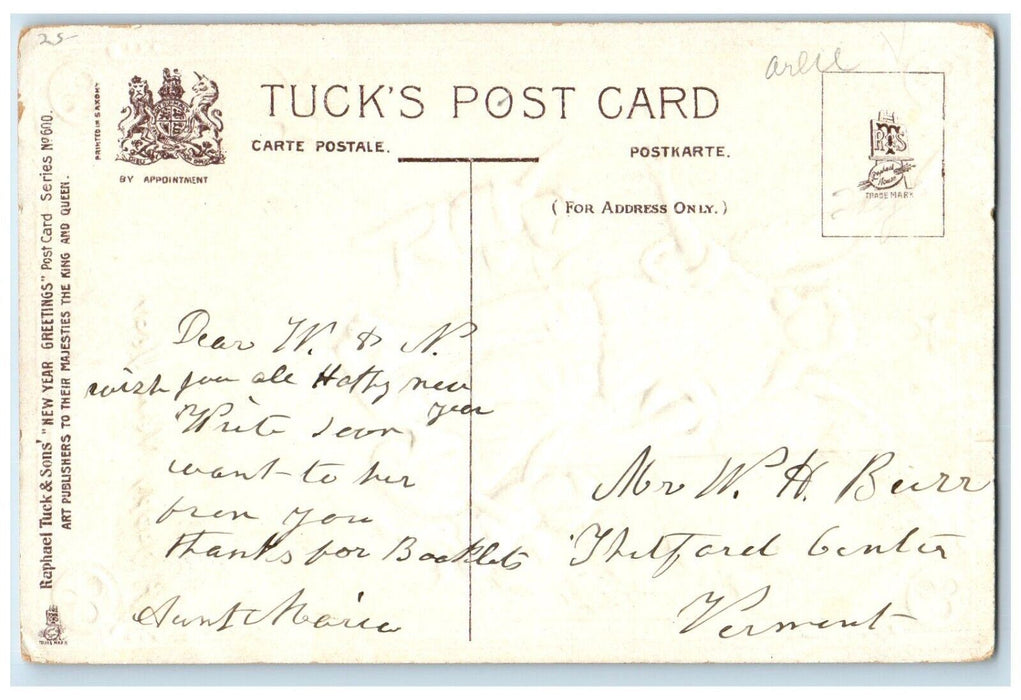 25-
arlee
TUCK'S POST CARD
CARTE POSTALE.
POSTKARTE.
BY APPOINTMENT
PRINTED IN SAXONY
(FOR ADDRESS ONLY.)
RTS
Raphael House
TRADE MARK
Raphael Tuck & Sons' "NEW YEAR GREETINGS" Post Card Series No 600.
ART PUBLISHERS TO THEIR MAJESTIES THE KING AND QUEEN.
TRADE MARK
Dear W. & N.
wish you all Happy new
year
Write soon
want to her
from you
thanks for Booklets
Aunt Maria
Mr W. H. Burr
Thetford Center
Vermont